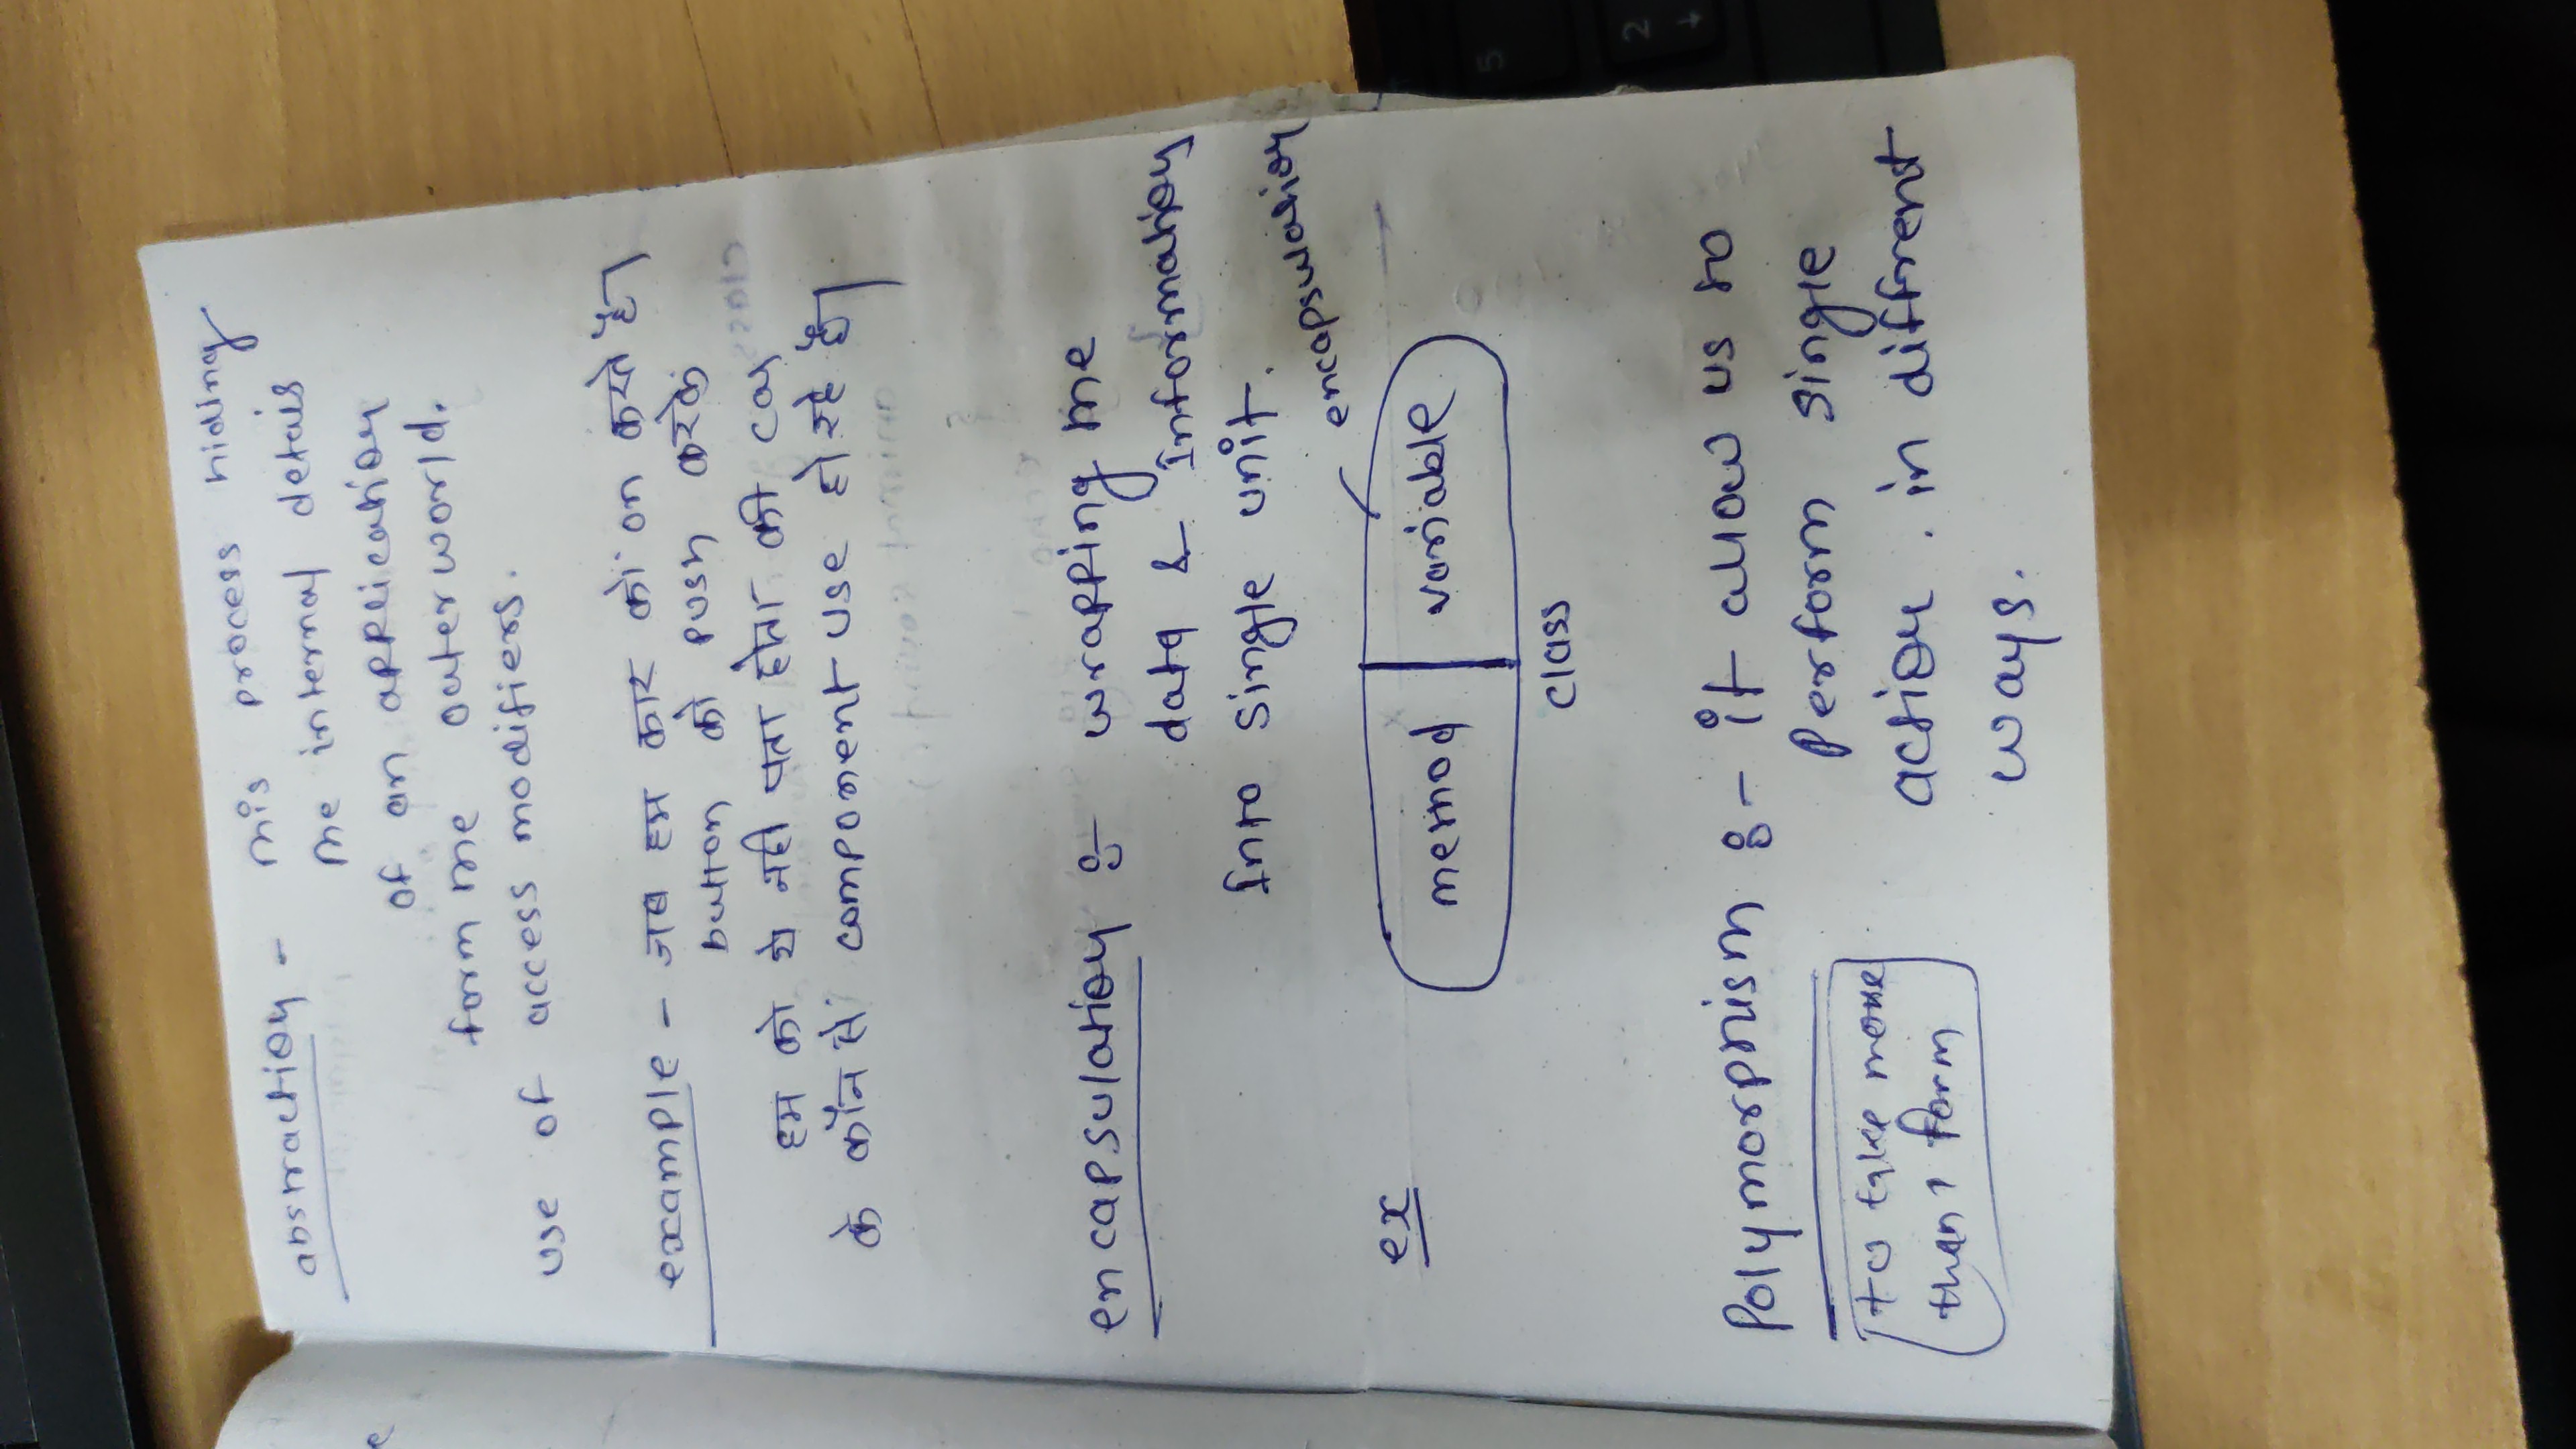 abstraction - this process hiding
the internal details
of an application
form the outerworld.
use of access modifiers.
example - जब हम कार को on करते है।
button को push करके
हम को ये नही पता होता की car
के कौन से component use हो रहे है।
encapsulation :- wrapping the
data & Information
Into single unit.
encapsulation
ex
method | variable
class
Polymorphism :- it allow us to
Perform single
action . in diffrent
ways.
to take more
than 1 form